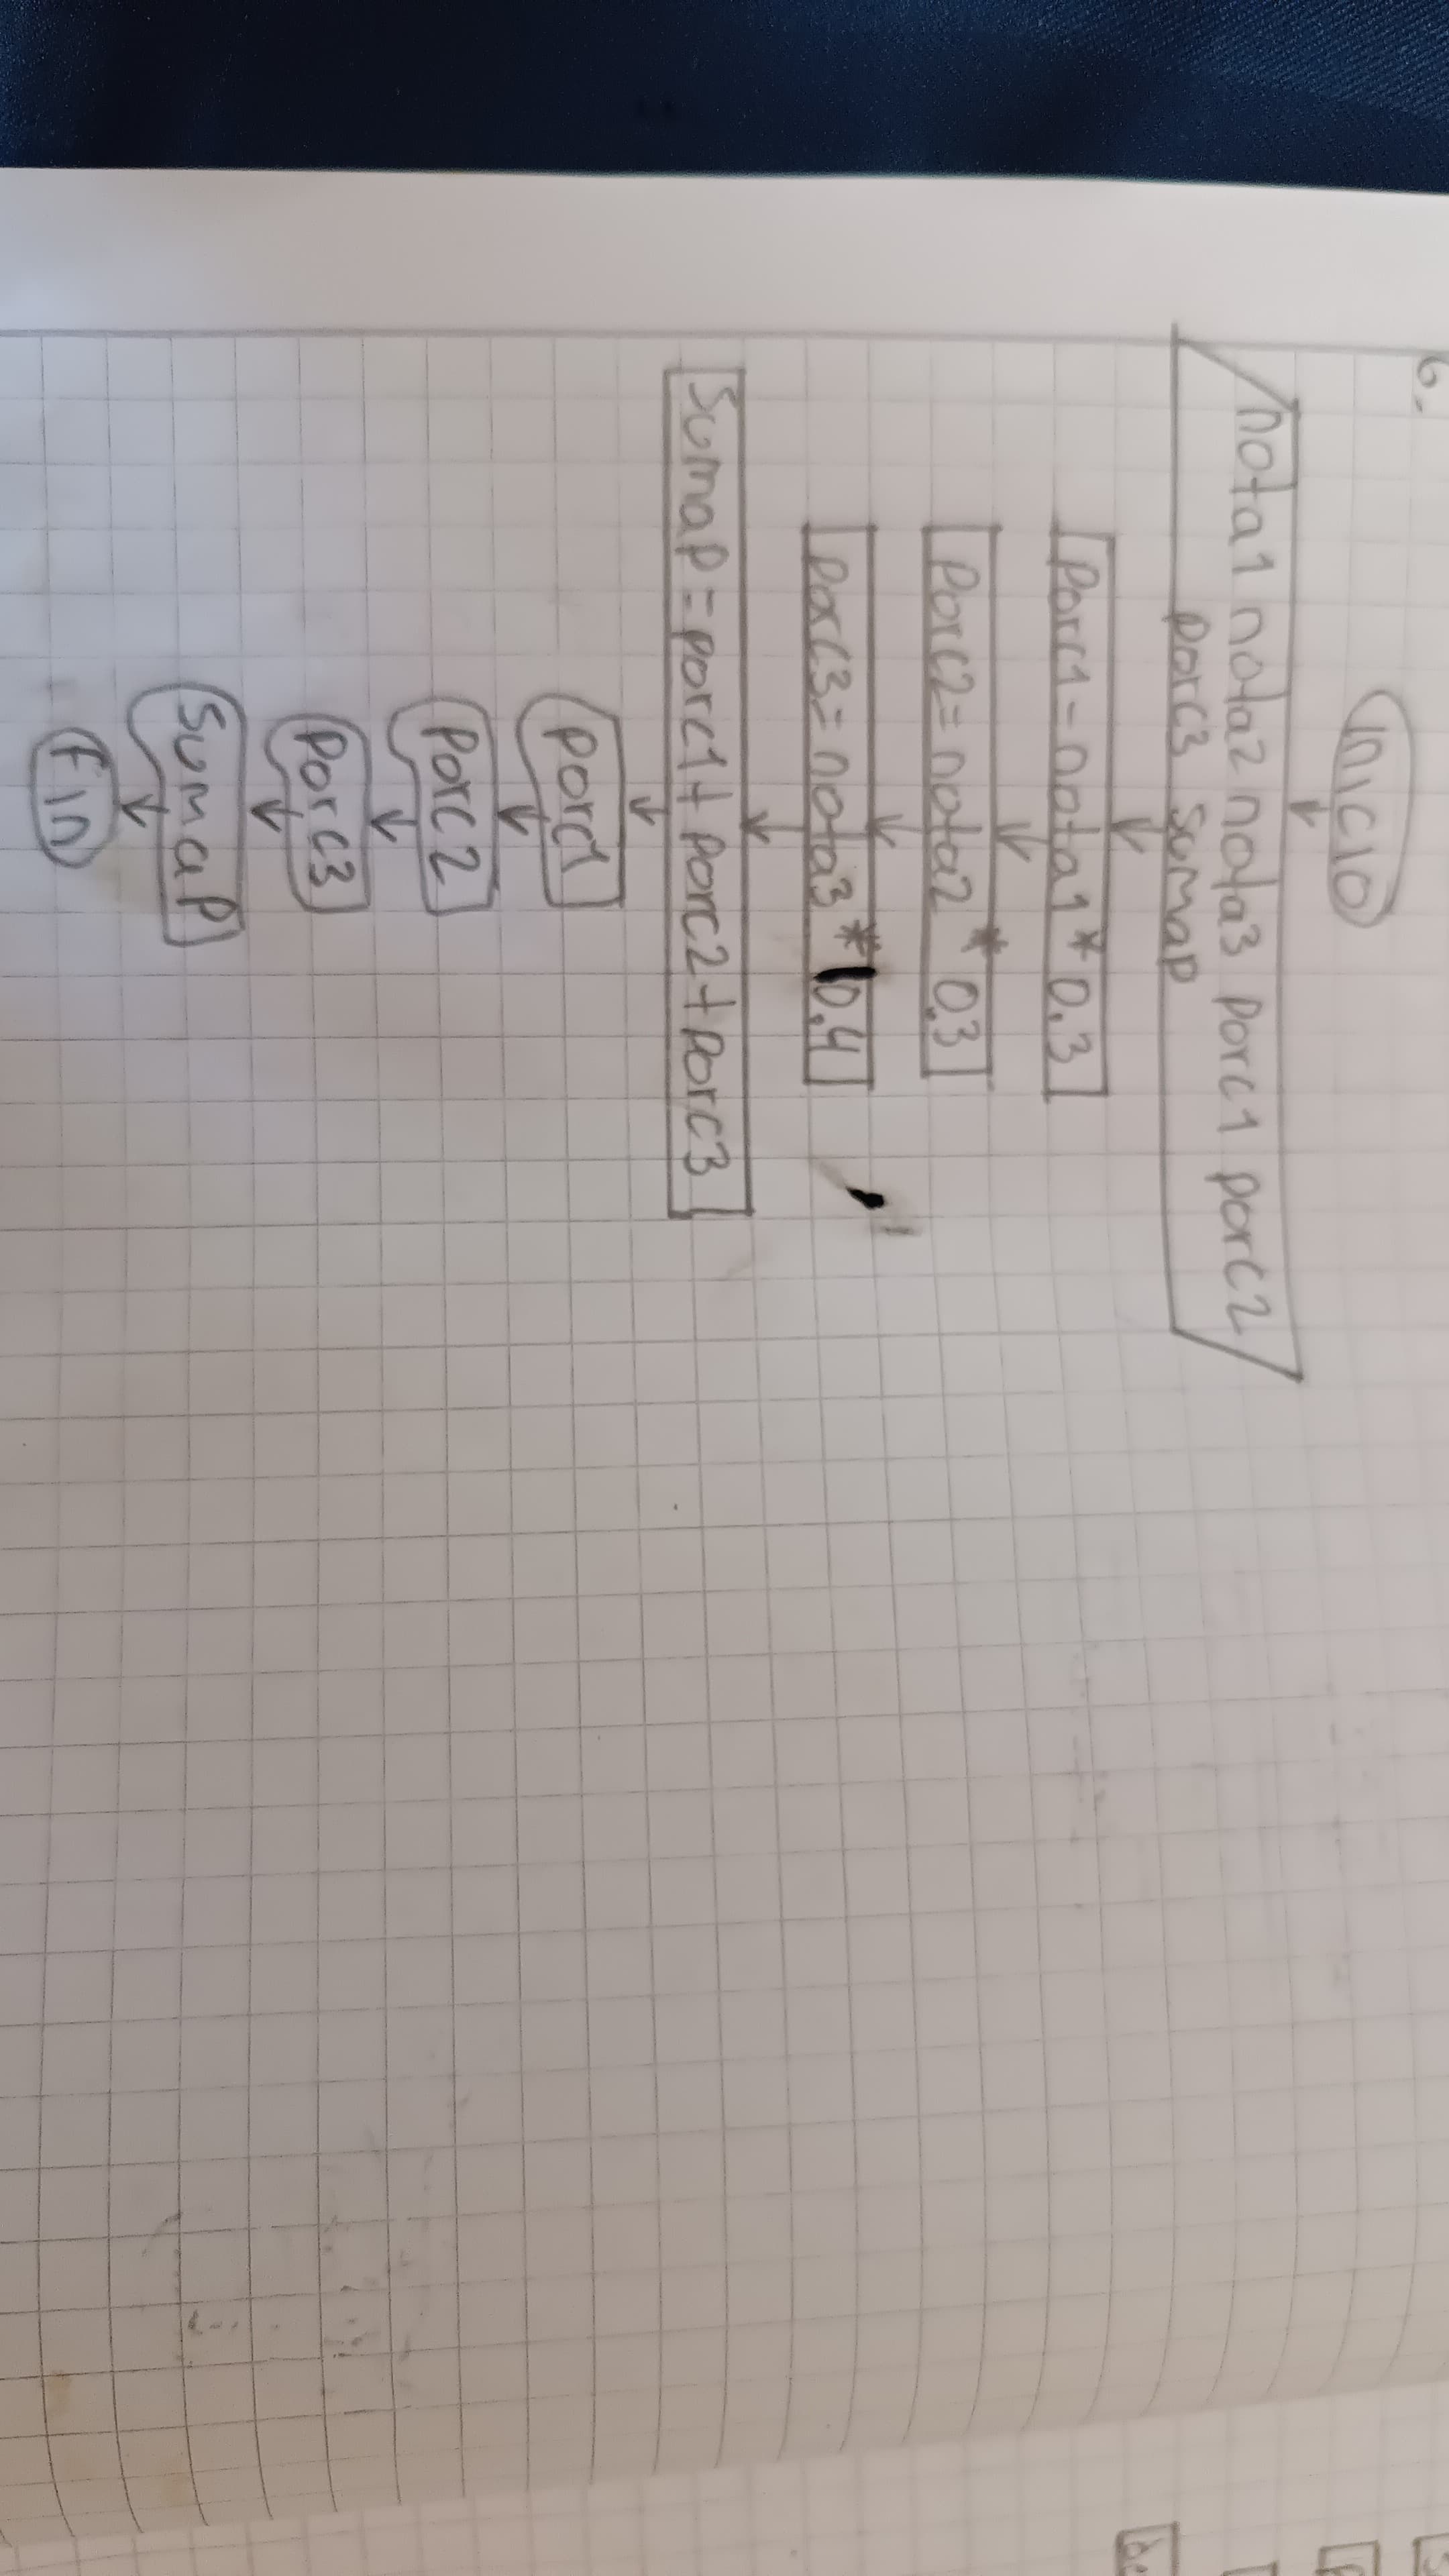 6.
Inicio
nota1 nota2 nota3 porc1 porc2
porc3 sumap
porc1=nota1*0.3
porc2=nota2*0.3
porc3=nota3*0.4
Sumap=porc1+porc2+porc3
porc1
porc2
porc3
Sumap
Fin